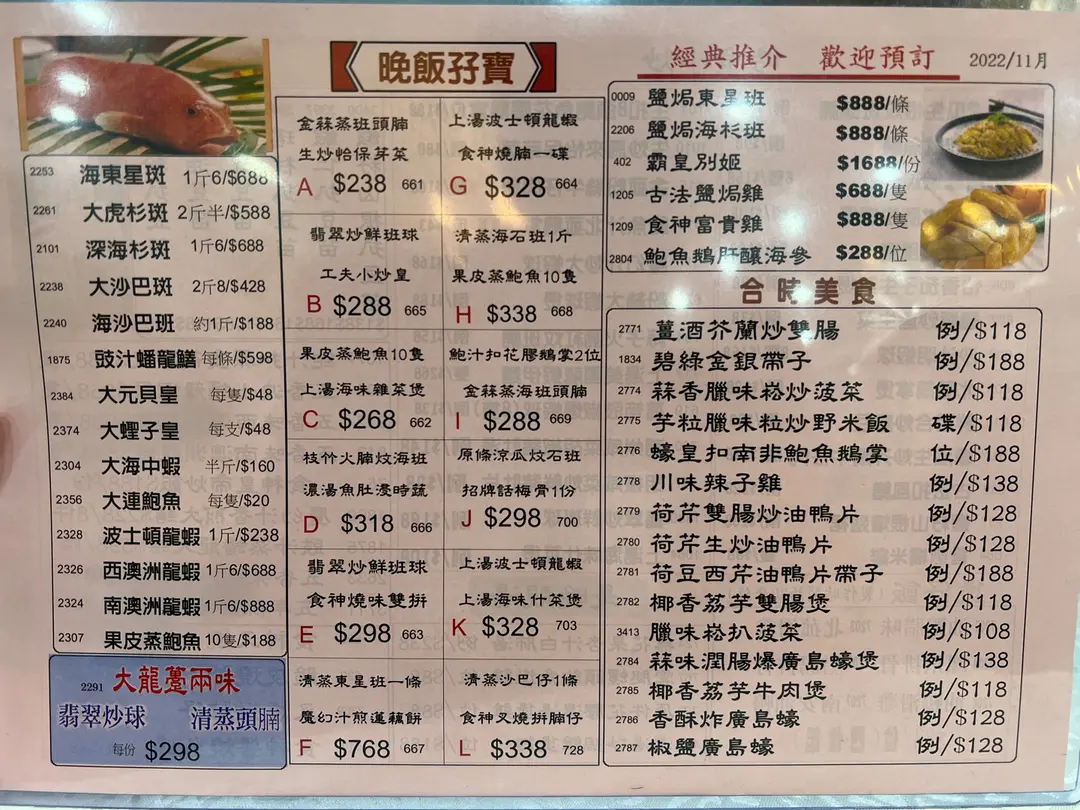 2253 海東星斑 1斤6/$688
2261 大虎杉斑 2斤半/$588
2101 深海杉斑 1斤6/$688
2238 大沙巴斑 2斤8/$428
2240 海沙巴班 約1斤/$188
1875 豉汁蟠龍鱔 每條/$598
2384 大元貝皇 每隻/$48
2374 大蟶子皇 每支/$48
2304 大海中蝦 半斤/$160
2356 大連鮑魚 每隻/$20
2328 波士頓龍蝦 1斤/$238
2326 西澳洲龍蝦 1斤6/$688
2324 南澳洲龍蝦 1斤6/$888
2307 果皮蒸鮑魚 10隻/$188
2291 大龍躉兩味
翡翠炒球 清蒸頭腩
每份 $298
晚飯孖寶
金蒜蒸班頭腩
生炒怡保芽菜
A $238 661
翡翠炒鮮班球
工夫小炒皇
B $288 665
果皮蒸鮑魚10隻
上湯海味雜菜煲
C $268 662
枝竹火腩炆海班
濃湯魚肚浸時蔬
D $318 666
翡翠炒鮮班球
食神燒味雙拼
E $298 663
清蒸東星班一條
魔幻汁煎蓮藕餅
F $768 667
上湯波士頓龍蝦
食神燒腩一碟
G $328 664
清蒸海石班1斤
果皮蒸鮑魚10隻
H $338 668
鮑汁扣花膠鵝掌2位
金蒜蒸海班頭腩
I $288 669
原條涼瓜炆石班
招牌話梅骨1份
J $298 700
上湯波士頓龍蝦
上湯海味什菜煲
K $328 703
清蒸沙巴仔1條
食神叉燒拼腩仔
L $338 728
經典推介 歡迎預訂 2022/11月
0009 鹽焗東星班 $888/條
2206 鹽焗海杉班 $888/條
402 霸皇別姬 $1688/份
1205 古法鹽焗雞 $688/隻
1209 食神富貴雞 $888/隻
2804 鮑魚鵝肝釀海參 $288/位
合時美食
2771 薑酒芥蘭炒雙腸 例/$118
1834 碧綠金銀帶子 例/$188
2774 蒜香臘味崧炒菠菜 例/$118
2775 芋粒臘味粒炒野米飯 碟/$118
2776 蠔皇扣南非鮑魚鵝掌 位/$188
2778 川味辣子雞 例/$138
2779 荷芹雙腸炒油鴨片 例/$128
2780 荷芹生炒油鴨片 例/$128
2781 荷豆西芹油鴨片帶子 例/$188
2782 椰香荔芋雙腸煲 例/$118
3413 臘味崧扒菠菜 例/$108
2784 蒜味潤腸爆廣島蠔煲 例/$138
2785 椰香荔芋牛肉煲 例/$118
2786 香酥炸廣島蠔 例/$128
2787 椒鹽廣島蠔 例/$128